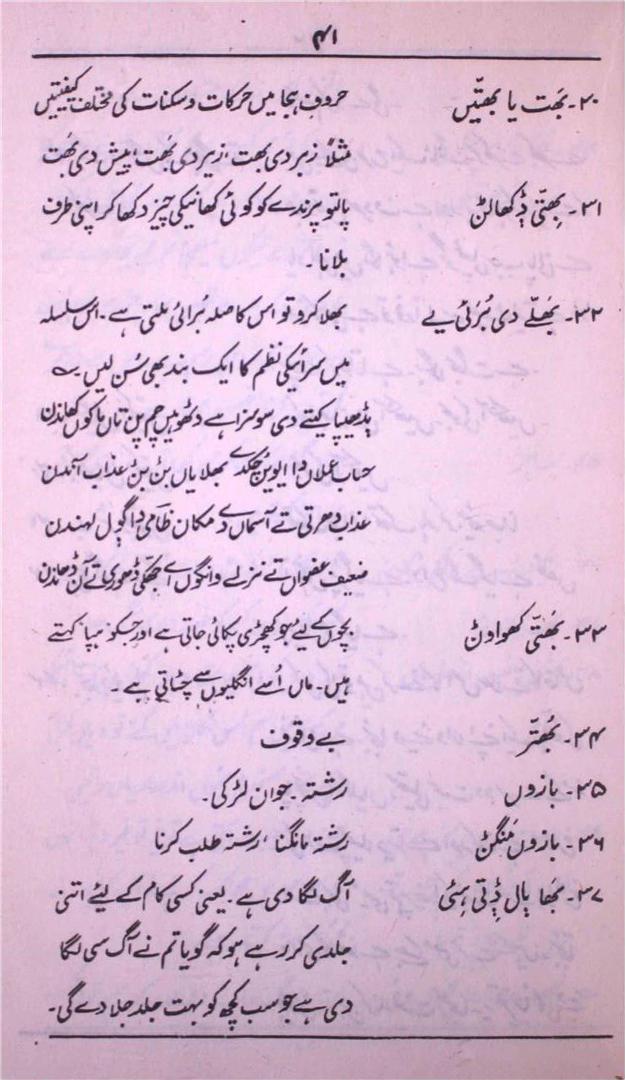 ۴۱
۳۰۔ بھَت یا بھتّیں حروف ہجا میں حرکات و سکنات کی مختلف کیفیتیں
مثلاً زبر دی بھت، زیر دی بھُت، پیش دی بھُت
۳۱۔ بھتّی ݙکھالݨ پالتو پرندے کو کوئی کھانیکی چیز دکھا کر اپنی طرف
بلانا۔
۳۲۔ بھلّے دی بُرئی ہے بھلا کرو تو اس کا صلہ بُرائی ملتی ہے۔ اس سلسلہ
میں سرائیکی نظم کا ایک بند بھی سُن لیں۔
کیتے دی سو سزا ہے ڈٹھو میں چم پن تاں ماکوں کھاندن
حساب عملاں دا ایویں چکدے بھلایاں بݨ بݨ عذاب آندن
عذاب دھرتی تے آسماں دے مکان ظامی دا گول لہندن
ضعیف عضواں تے نزلے وانگوں اے جھکی ڈھوری تے آن ڈھاندن
۳۳۔ بھتّی کھواوݨ بچوں کے لیے جو کھچڑی پکائی جاتی ہے اور جسکو بپا کہتے
ہیں۔ ماں اُسے انگلیوں سے چٹاتی ہے۔
۳۴۔ بھُتّر بے وقوف
۳۵۔ بازوں رشتہ۔ جوان لڑکی۔
۳۶۔ بازوں مَنگݨ رشتہ مانگنا، رشتہ طلب کرنا
۳۷۔ بھَا بال ݙتی ہئی آگ لگا دی ہے۔ یعنی کسی کام کے لیئے اتنی
جلدی کر رہے ہو کہ گویا تم نے آگ سی لگا
دی ہے جو سب کچھ کو بہت جلد جلا دے گی۔